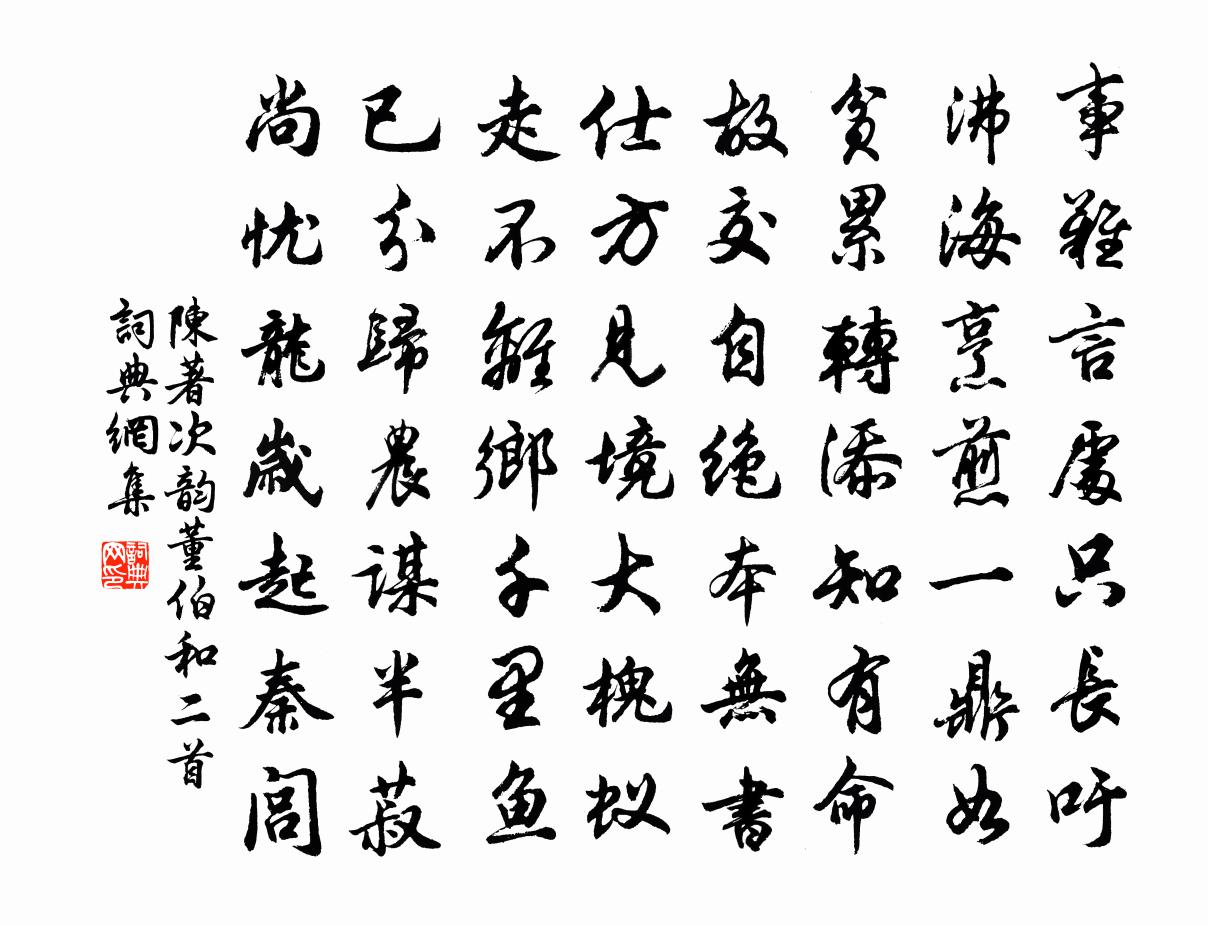 事難言處只長吁
沸海烹煎一鼎如
貧累轉添知有命
故交自絕本無書
仕方見境大槐蚁
走不離鄉千里鱼
已分歸農謀半菽
尚忧龍歲起秦閭
陳著次韵董伯和二首
詞典網集
詞典网印